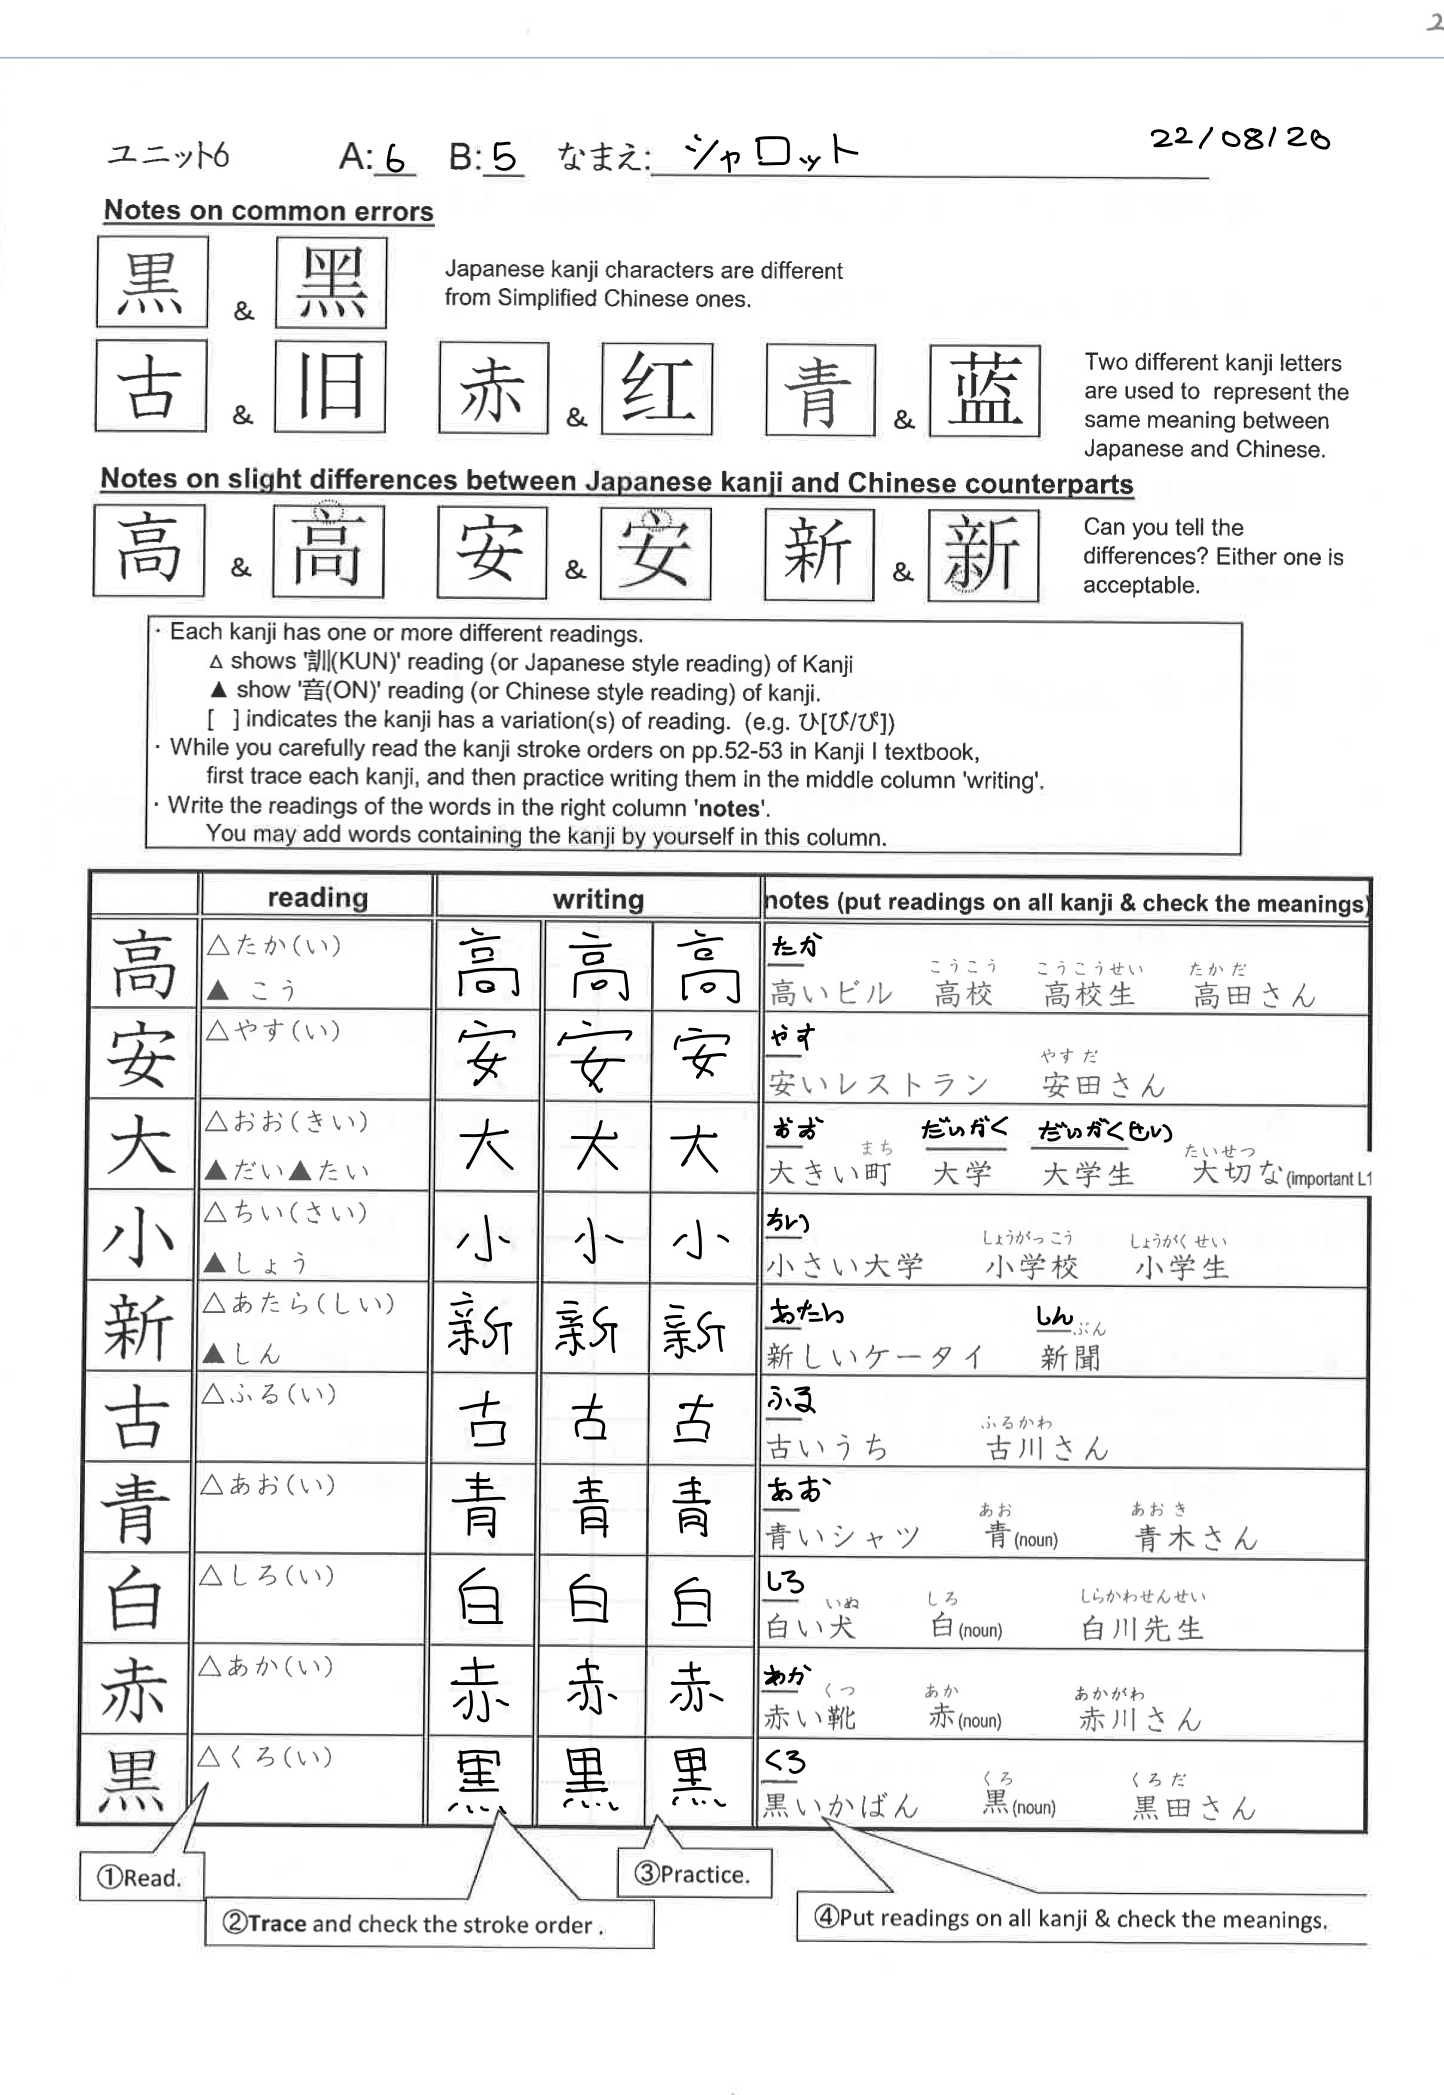 2
ユニット6 A: 6 B: 5 なまえ: シャロット 22/08/20
Notes on common errors
黒 & 黑 Japanese kanji characters are different
from Simplified Chinese ones.
古 & 旧 赤 & 红 青 & 蓝 Two different kanji letters
are used to represent the
same meaning between
Japanese and Chinese.
Notes on slight differences between Japanese kanji and Chinese counterparts
高 & 高 安 & 安 新 & 新 Can you tell the
differences? Either one is
acceptable.
・Each kanji has one or more different readings.
△ shows '訓(KUN)' reading (or Japanese style reading) of Kanji
▲ show '音(ON)' reading (or Chinese style reading) of kanji.
[ ] indicates the kanji has a variation(s) of reading. (e.g. ひ[び/ぴ])
・While you carefully read the kanji stroke orders on pp.52-53 in Kanji I textbook,
first trace each kanji, and then practice writing them in the middle column 'writing'.
・Write the readings of the words in the right column 'notes'.
You may add words containing the kanji by yourself in this column.
reading writing notes (put readings on all kanji & check the meanings)
高 △たか(い) 高 高 高 たか
こうこう こうこうせい たかだ
▲ こう 高いビル 高校 高校生 高田さん
安 △やす(い) 安 安 安 やす
やすだ
安いレストラン 安田さん
大 △おお(きい) 大 大 大 おお だいがく だいがくせい
まち たいせつ
▲だい▲たい 大きい町 大学 大学生 大切な(important L1
小 △ちい(さい) 小 小 小 ちい
しょうがっこう しょうがくせい
▲しょう 小さい大学 小学校 小学生
新 △あたら(しい) 新 新 新 あたら しん
ぶん
▲しん 新しいケータイ 新聞
古 △ふる(い) 古 古 古 ふる
ふるかわ
古いうち 古川さん
青 △あお(い) 青 青 青 あお
あお あおき
青いシャツ 青(noun) 青木さん
白 △しろ(い) 白 白 白 しろ
いぬ しろ しらかわせんせい
白い犬 白(noun) 白川先生
赤 △あか(い) 赤 赤 赤 あか
くつ あか あかがわ
赤い靴 赤(noun) 赤川さん
黒 △くろ(い) 黒 黒 黒 くろ
くろ くろだ
黒いかばん 黒(noun) 黒田さん
①Read. ③Practice.
②Trace and check the stroke order . ④Put readings on all kanji & check the meanings.